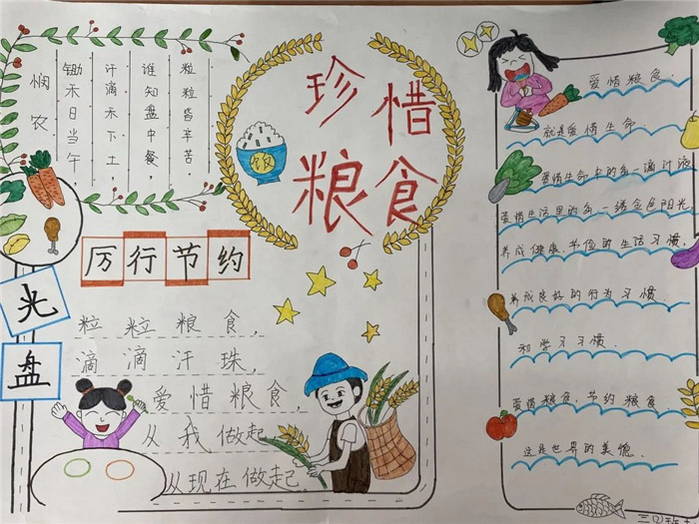 悯农
锄禾日当午,
汗滴禾下土,
谁知盘中餐,
粒粒皆辛苦.
珍惜
粮食
饭
厉行节约
光
盘
粒粒粮食,
滴滴汗珠,
爱惜粮食,
从我做起
从现在做起.
爱惜粮食.
就是爱惜生命.
爱惜生命中的每一滴汁液
爱惜生活里的每一缕金色阳光.
养成健康、节俭的生活习惯,
养成良好的行为习惯.
和学习习惯.
爱惜粮食、节约粮食
这是世界的美德.
三(2)班